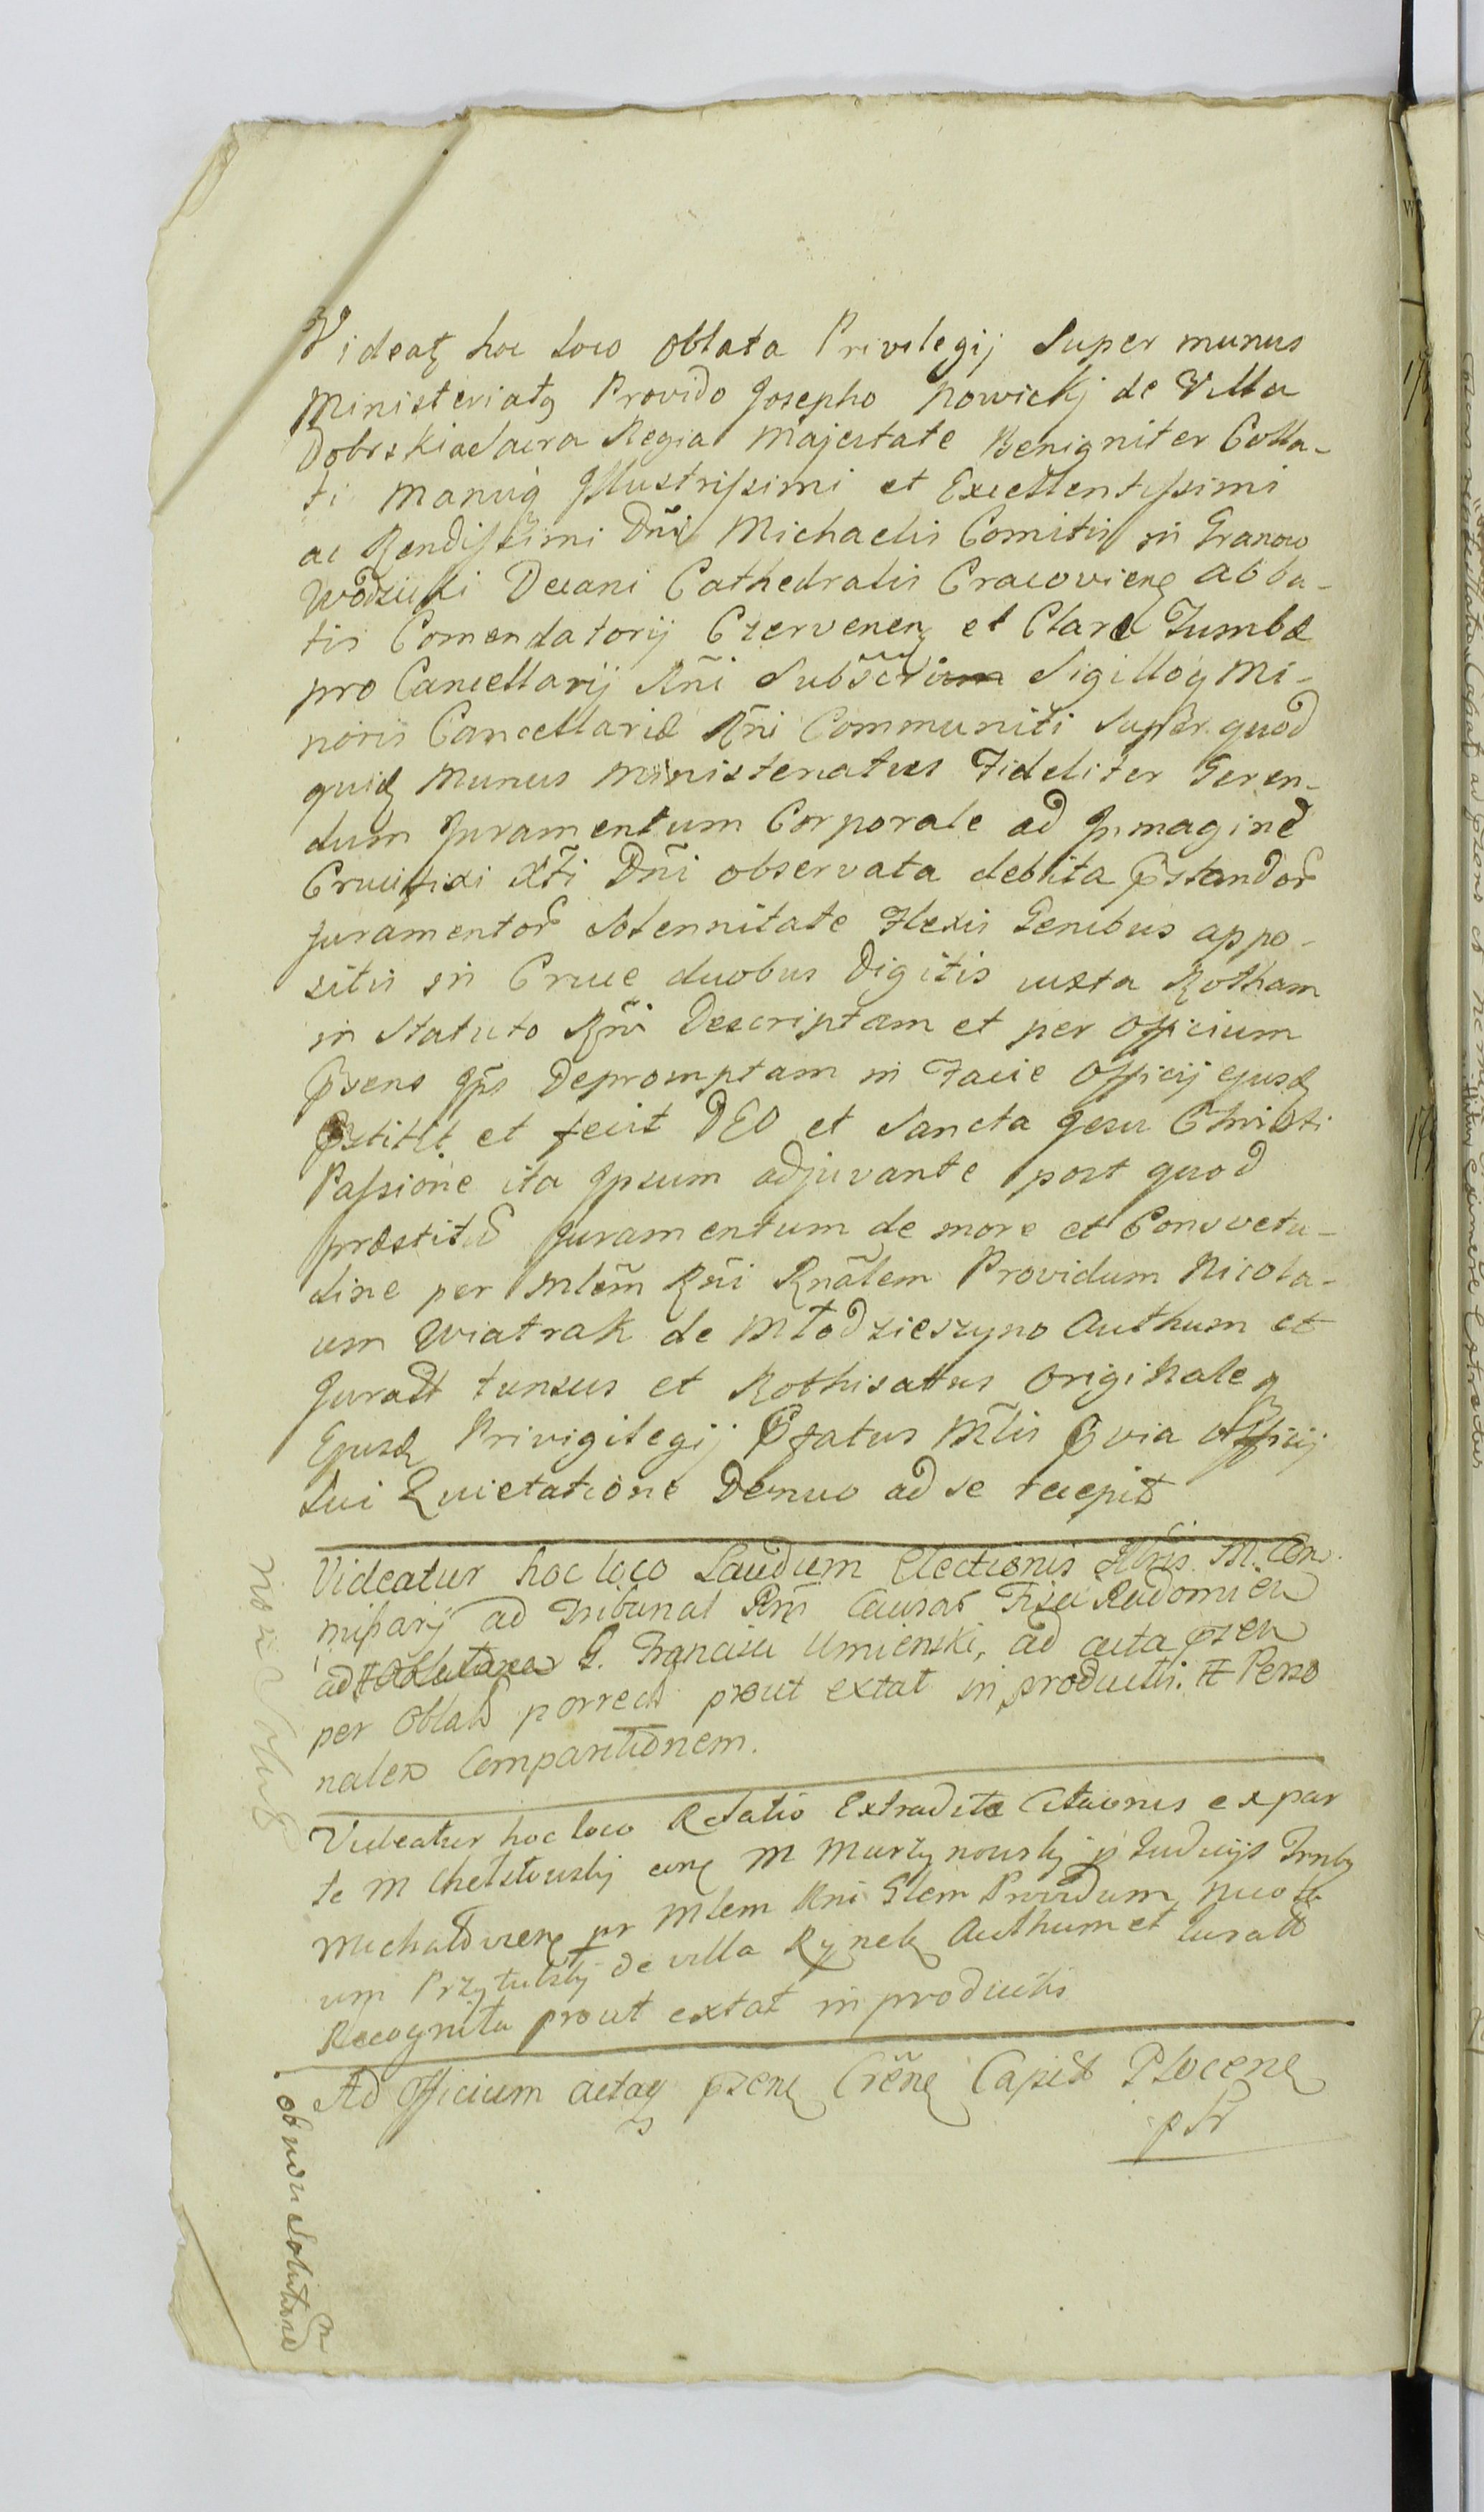 Videatz hoc loco oblata Privilegij Super munus
Ministeriatq Provido Josepho Nowickj de Villa
Dobrskiae Sacra Regia Majestate Benigniter Colla-
ti Manuq Jllustrissimi et Excellentissimi
ac Rendissimi Dni Michaelis Comitis in Granow
Wodzicki Decani Cathedralis Cracovienz Abba-
tis Comendatorij Czervenenz et Claræ Tumbæ
pro Cancellarij Rñi Subscri Sigilloq Mi-
noris Cancellariæ Rñi Communiti Super quod
quidz Munus Ministeriatus Fideliter Geren-
dum Juramentum Corporale ad Jmagine
Crucifixi Xti Dñi observata debita pstandor
Juramentor Solennitate Flexis Genibus appo-
sitis in Cruce duobus Digitis iuxta Rotham
in Statuto Rñi Descriptam et per Officium
psens Jps Depromptam in Facie Officij ejusdz
pstitit et fecit DEO et Sancta Jesu Christi
Passione ita Jpsum adjuvante post quod
præstitu Juramentum de more et Consvetu-
dine per Mlem Rñi Rnãlem Providum Nicola-
um Wiatrak de Młodzieszyno Authum et
Juratt tunsus et Rothisatus Originaleq
Ejusdz Privigilegij Pfatus Mlis via Officij
Sui Quietatione Denuo ad se recepit
Videatur hoc loco Laudum Electionis M. Com
missarij ad Tribunal Rni Causar Fisci Radomien
ad G. Francisci Umienski, ad acta psen
per Oblat porrect prout extat in productis. Perso
nalem Comparitionem.
Videatur hoc loco Relatio Extraditæ Citaionis ex par
te M Chełstowskj M Martynowskj Judicijs
Michałowienz pr Mlem Rni Glem Providum Nicola
um Przytulskj de villa Rynek Authum et Juratt
Recognita prout extat in productis
Ad Officium actaq psenz Crẽnz Capit Plocenz